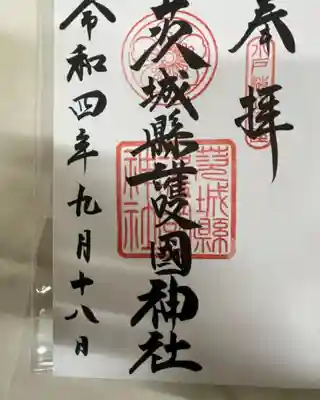 奉拝
水戸
茨城縣護國神社
茨城縣
護國
神社
令和四年九月十八日